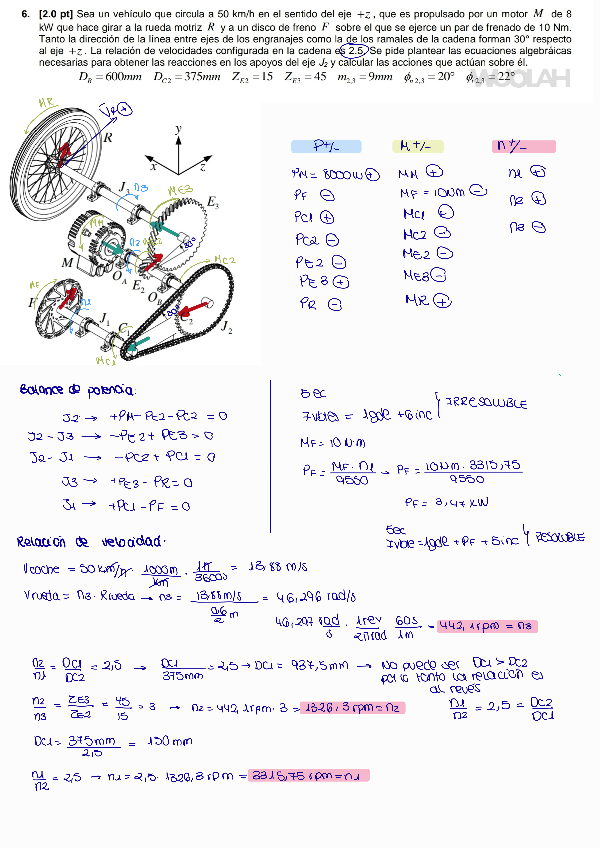 6. [2.0 pt] Sea un vehículo que circula a 50 km/h en el sentido del eje +z, que es propulsado por un motor M de 8
kW que hace girar a la rueda motriz R y a un disco de freno F sobre el que se ejerce un par de frenado de 10 Nm.
Tanto la dirección de la línea entre ejes de los engranajes como la de los ramales de la cadena forman 30° respecto
al eje +z. La relación de velocidades configurada en la cadena es 2.5. Se pide plantear las ecuaciones algebráicas
necesarias para obtener las reacciones en los apoyos del eje J2 y calcular las acciones que actúan sobre él.
D_R = 600mm D_C2 = 375mm Z_E2 = 15 Z_E3 = 45 m_2,3 = 9mm ϕ_o2,3 = 20° ϕ_t2,3 = 22°
WUOLAH
MR
VR +
R
y
x
z
J3
n3
ME3
E3
MM
n2
M
O_A
E2
O_B
30°
MC2
MF
n1
F
J1
C1
C2
J2
MC1
P+/- M+/- n+/-
PM = 8000W + MM + n1 +
PF - MF = 10Nm - n2 +
PC1 + MC1 + n3 -
PC2 - MC2 -
PE2 - ME2 -
PE3 + ME3 -
PR - MR +
Balance de potencia:
J2 → +PM-PE2-PC2 = 0
J2-J3 → -PE2+PE3 = 0
J2-J1 → -PC2+PC1 = 0
J3 → +PE3-PR = 0
J1 → +PC1-PF = 0
5ec
7vbles = 1gdl + 6inc } IRRESOLUBLE
MF = 10 N·m
PF = MF·n1 / 9550 → PF = 10Nm·3315,75 / 9550
PF = 3,47 kW
5ec
7vble = 1gdl + PF + 5inc } RESOLUBLE
Relación de velocidad:
Vcoche = 50 km/h · 1000m/1km · 1h/3600s = 13.88 m/s
Vrueda = n3·Rrueda → n3 = 13,88m/s / 0,6/2 m = 46,296 rad/s
46,297 rad/s · 1rev/2πrad · 60s/1m = 442,1rpm = n3
n2/n1 = DC1/DC2 = 2,5 → DC1/375mm = 2,5 → DC1 = 937,5mm → No puede ser DC1 > DC2
por lo tanto la relación es
al revés
n2/n3 = ZE3/ZE2 = 45/15 = 3 → n2 = 442,1rpm · 3 = 1326,3rpm = n2
n1/n2 = 2,5 = DC2/DC1
DC1 = 375mm / 2,5 = 150 mm
n1/n2 = 2,5 → n1 = 2,5 · 1326,3 rpm = 3315,75 rpm = n1